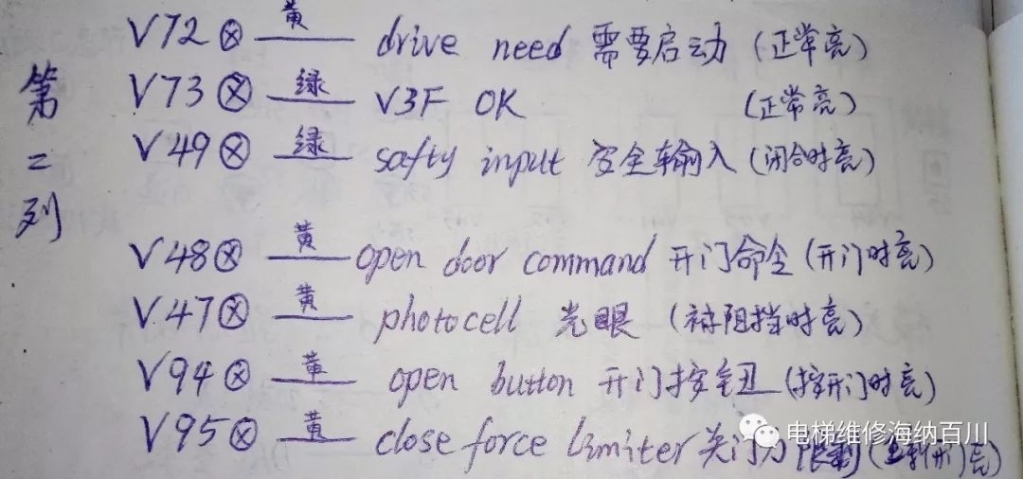 第二列
V72 ⊗ 黄 drive need 需要启动 (正常亮)
V73 ⊗ 绿 V3F OK (正常亮)
V49 ⊗ 绿 safty input 安全输入 (闭合时亮)
V48 ⊗ 黄 open door command 开门命令 (开门时亮)
V47 ⊗ 黄 photocell 光眼 (被阻挡时亮)
V94 ⊗ 黄 open button 开门按钮 (按开门时亮)
V95 ⊗ 黄 close force limiter 关门力限制
电梯维修海纳百川